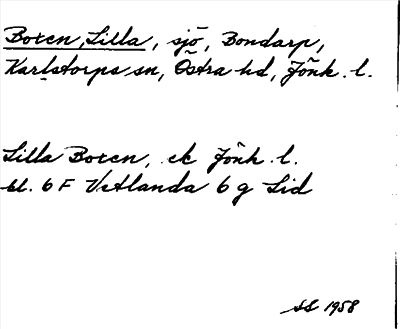 Boxen, Lilla, sjö, Bondarp,
Karlstorps sn, Östra hd, Jönk. l.
Lilla Boxen, ek Jönk l.
bl. 6 F Vetlanda 6 g Sid
SS 1958